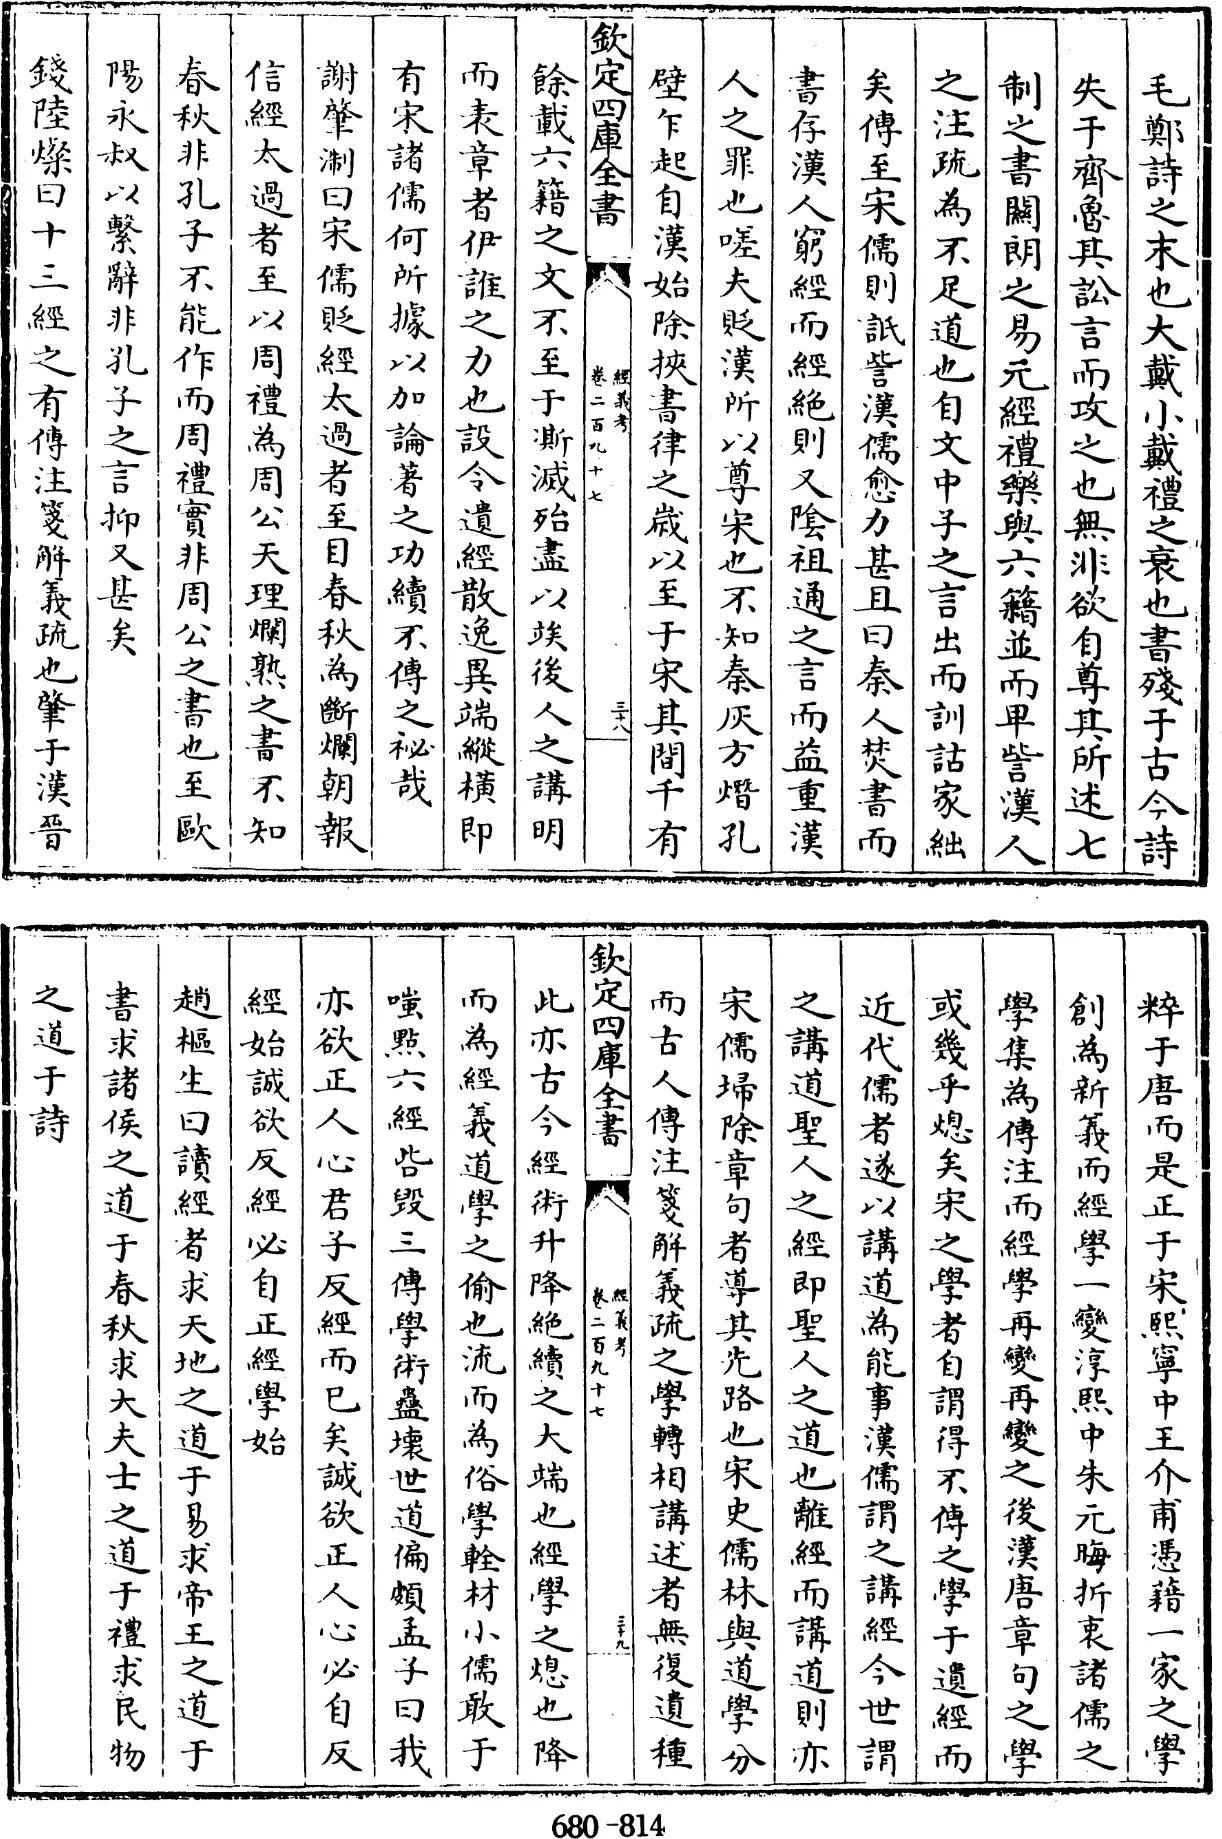 毛鄭詩之末也大戴小戴禮之衰也書殘于古今詩
失于齊魯其訟言而攻之也無非欲自尊其所述七
制之書關朗之易元經禮樂與六籍並而畀訾漢人
之注疏為不足道也自文中子之言出而訓詁家絀
矣傳至宋儒則詆訾漢儒愈力甚且曰秦人焚書而
書存漢人窮經而經絶則又陰祖通之言而益重漢
人之罪也嗟夫貶漢所以尊宋也不知秦灰方熸孔
壁乍起自漢始除挾書律之歲以至于宋其間千有
欽定四庫全書
經義考
卷二百九十七
三十八
餘載六籍之文不至于澌滅殆盡以竢後人之講明
而表章者伊誰之力也設令遺經散逸異端縱橫即
有宋諸儒何所據以加論著之功續不傳之祕哉
謝肇淛曰宋儒貶經太過者至目春秋為斷爛朝報
信經太過者至以周禮為周公天理爛熟之書不知
春秋非孔子不能作而周禮實非周公之書也至歐
陽永叔以繫辭非孔子之言抑又甚矣
錢陸燦曰十三經之有傳注箋解義疏也肇于漢晉
粹于唐而是正于宋熙寧中王介甫憑藉一家之學
創為新義而經學一變淳熙中朱元晦折衷諸儒之
學集為傳注而經學再變再變之後漢唐章句之學
或幾乎熄矣宋之學者自謂得不傳之學于遺經而
近代儒者遂以講道為能事漢儒謂之講經今世謂
之講道聖人之經即聖人之道也離經而講道則亦
宋儒埽除章句者導其先路也宋史儒林與道學分
而古人傳注箋解義疏之學轉相講述者無復遺種
欽定四庫全書
經義考
卷二百九十七
三十九
此亦古今經術升降絶續之大端也經學之熄也降
而為經義道學之偷也流而為俗學輇材小儒敢于
嗤點六經呰毀三傳學術蠱壞世道偏頗孟子曰我
亦欲正人心君子反經而已矣誠欲正人心必自反
經始誠欲反經必自正經學始
趙樞生曰讀經者求天地之道于易求帝王之道于
書求諸侯之道于春秋求大夫士之道于禮求民物
之道于詩
680-814